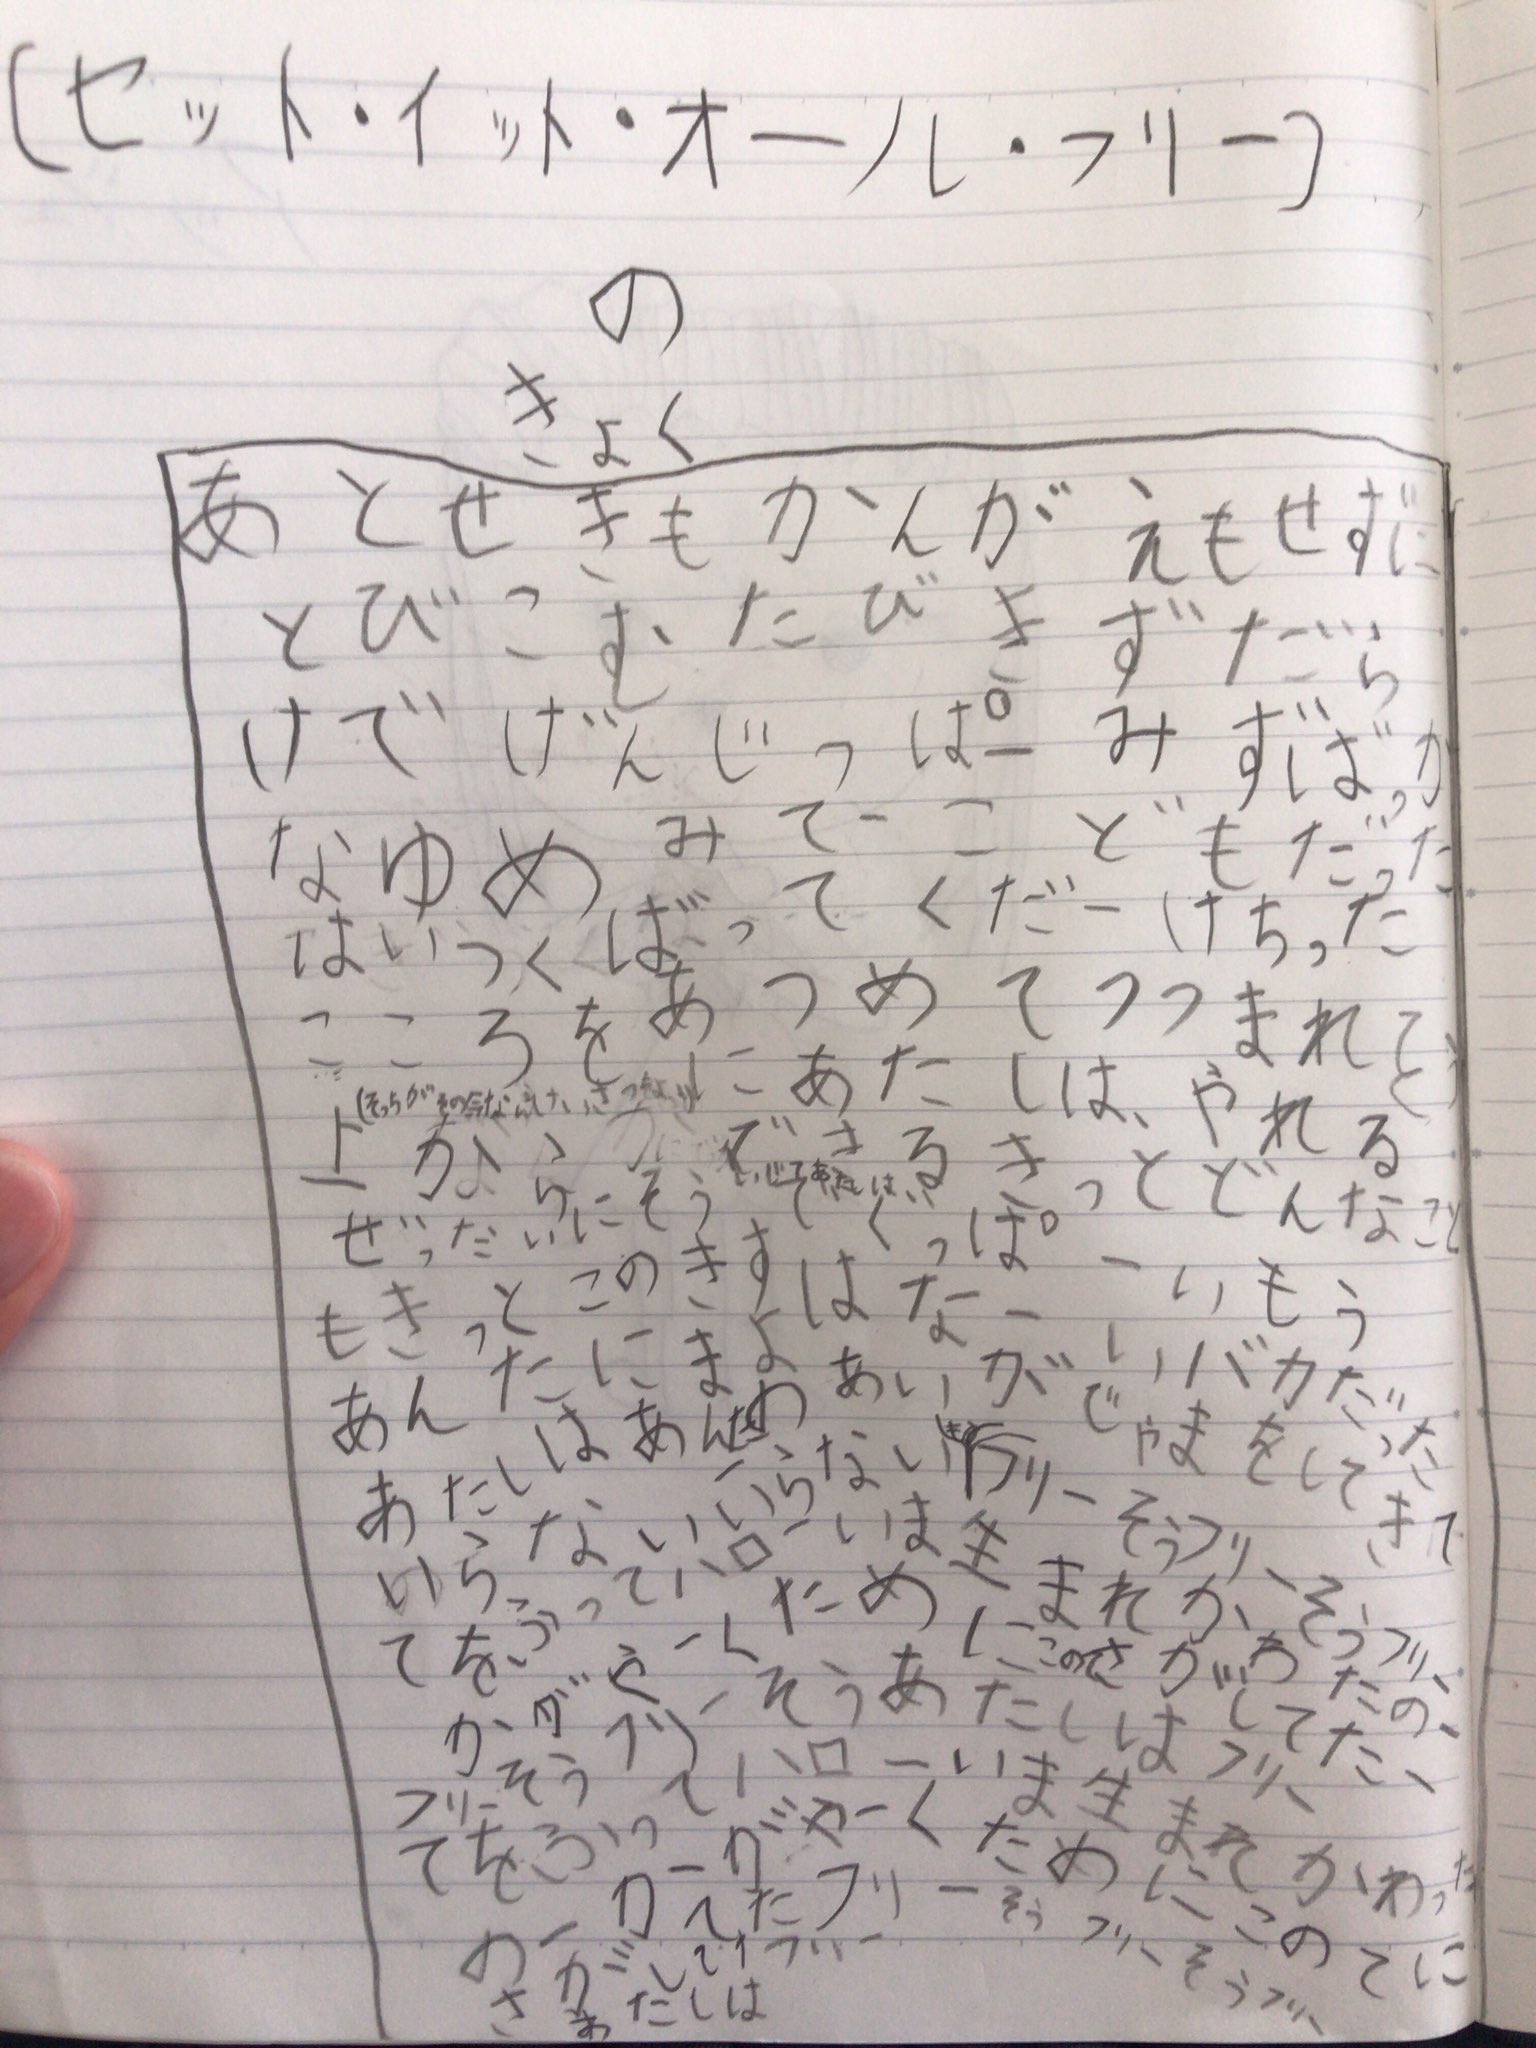 (セット・イット・オール・フリー)
の
きょく
あとせきもかんがえもせずに
とびこむたびきずだら
けでげんじっぱーみずばっか
なゆめみてーこどもだった
はいつくばってくだーけちった
こころをあつめてつつまれてと
にあたしは、やれる
からできるきっとどんなこと
ぜっだいにそう
もきっとこのきずはなーいもう
あんたにまよわあいがいバカだった
あたしはあんたじゃまをしてきて
いらないいらないフリーそうフリーそうフリー
てをふってハローいま生まれかわったの、
かがやーくためにこのさがしてた、
フリーそうフリーそうあたしはフリー
てをふってハローいま生まれかわった
のーかーがやーくためにこのてに
さがしてたフリーそうフリーそうフリー
あたしはフリー